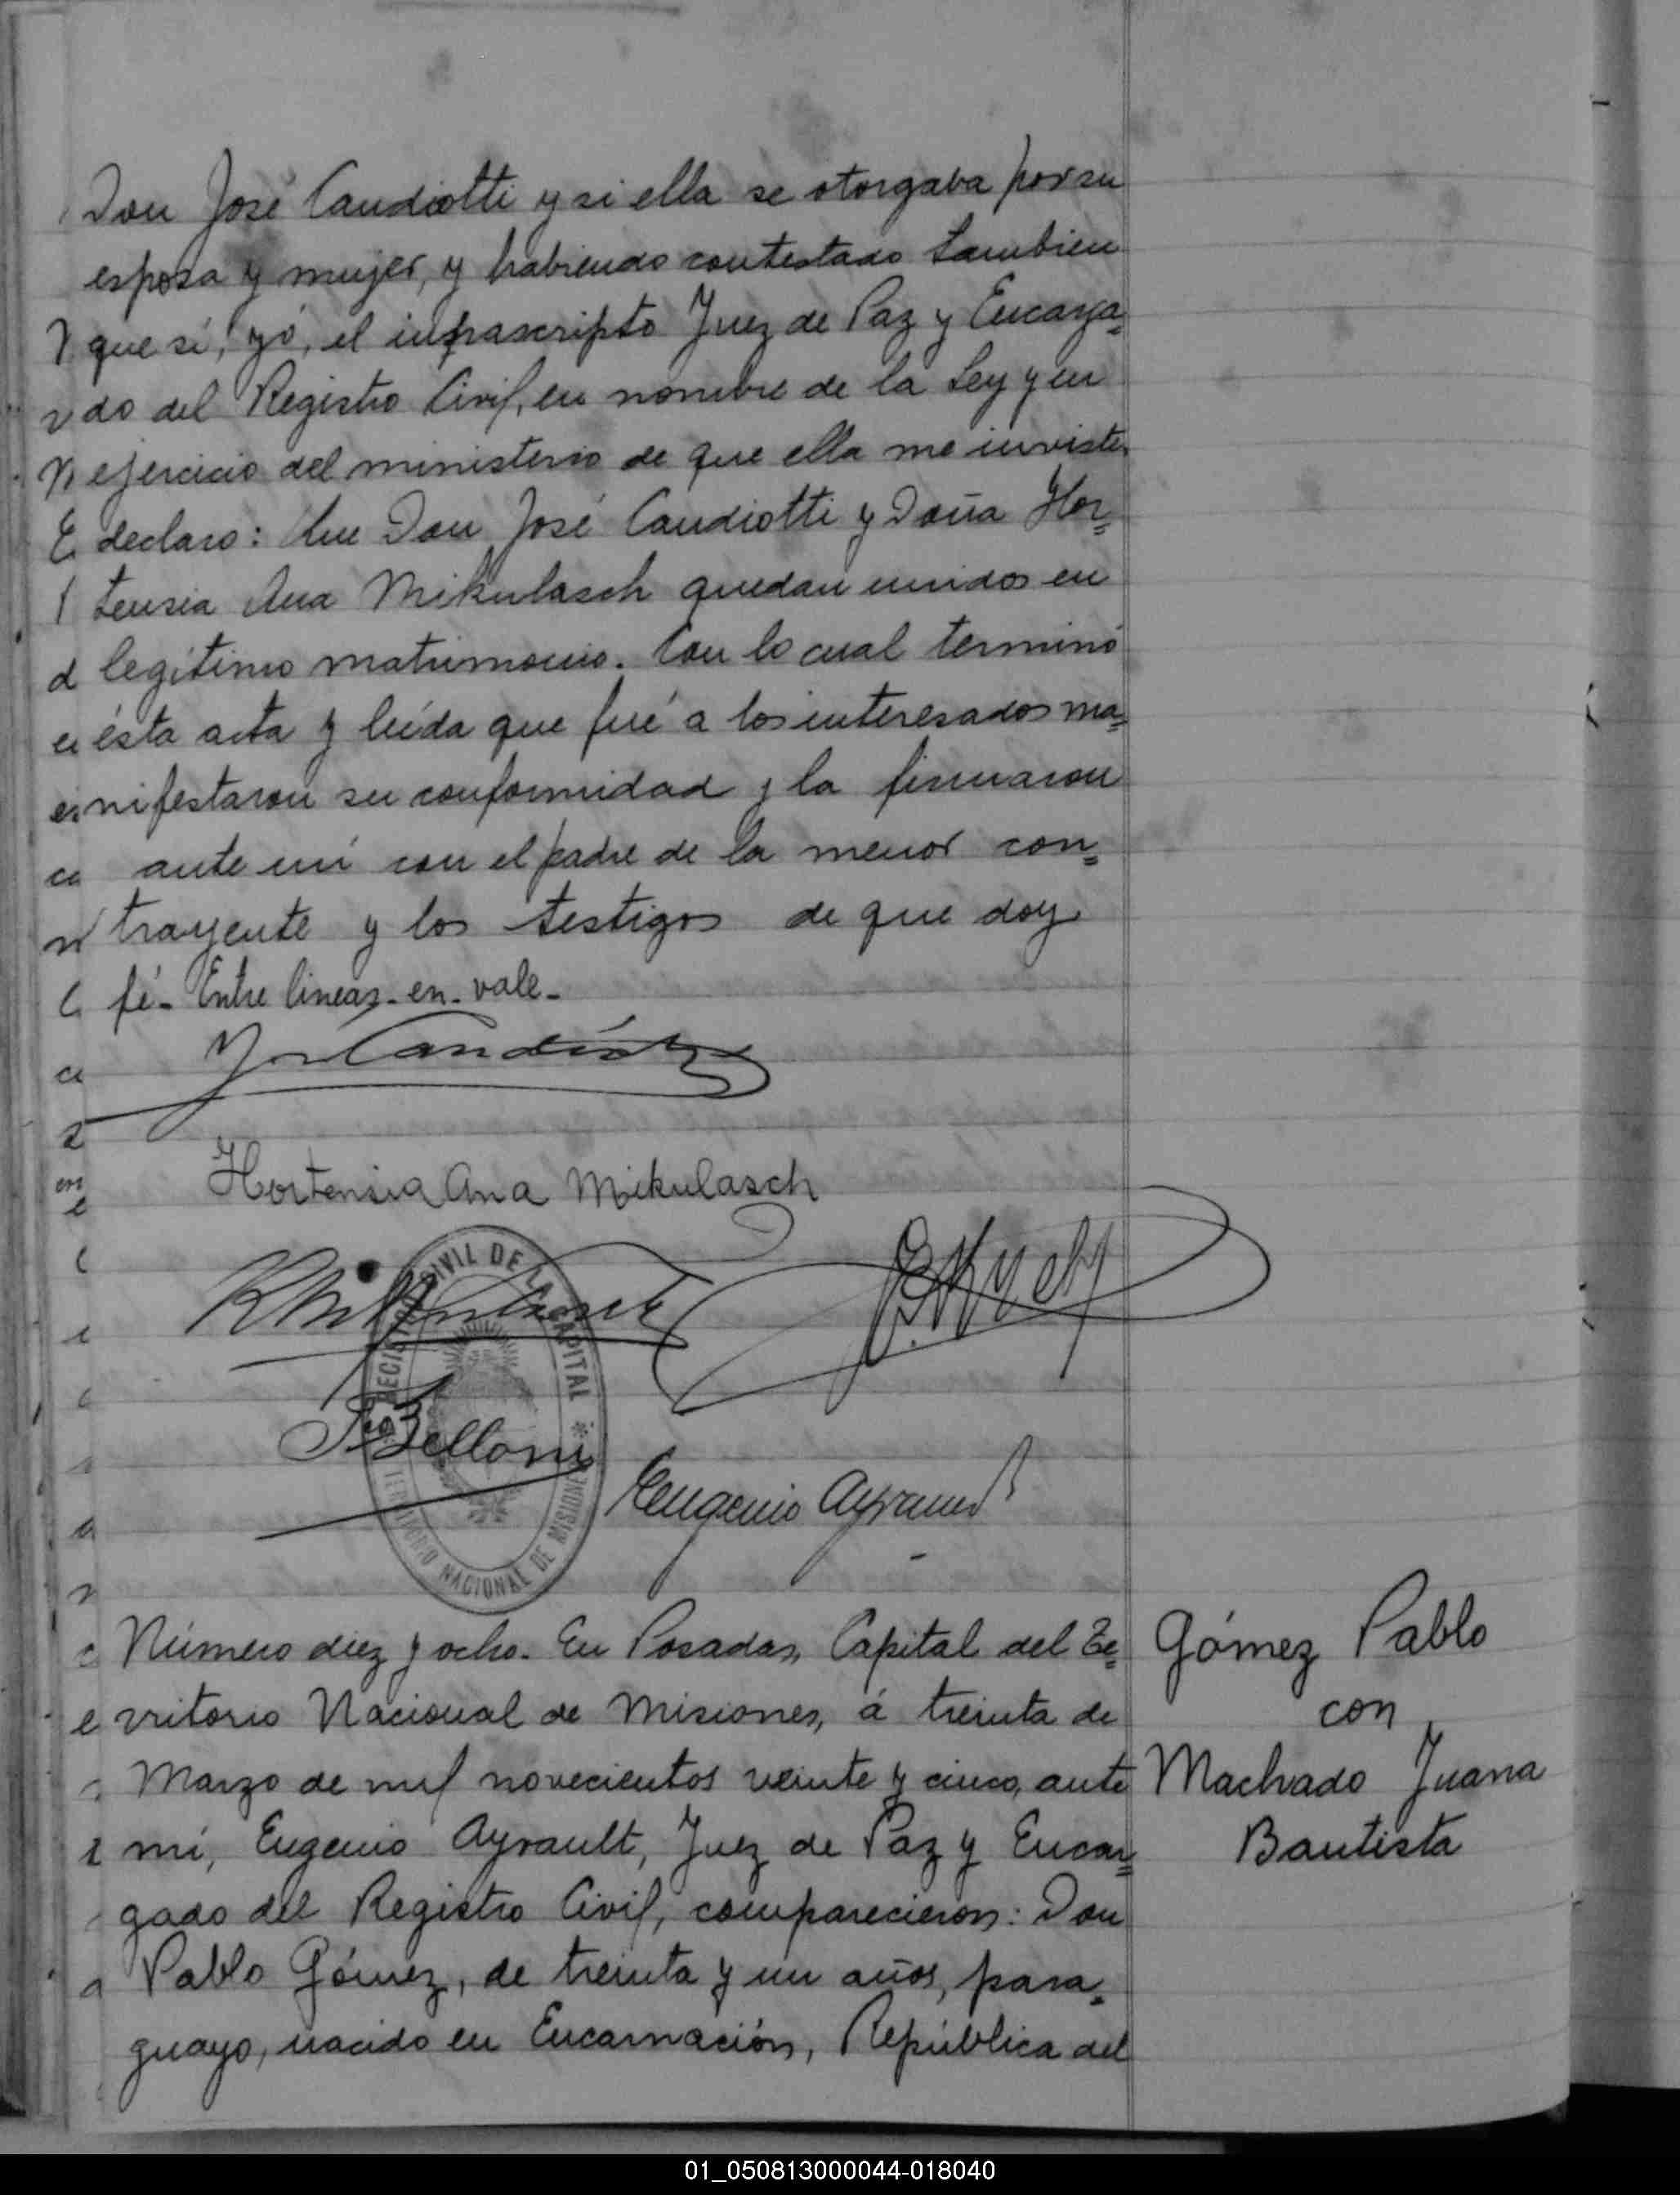 Don José Candiotti y si ella se otorgaba por su
esposa y mujer, y habiendo contestado tambien
que sí, yó, el infrascripto Juez de Paz y Encarga=
do del Registro Civil, en nombre de la Ley y en
ejercicio del ministerio de que ella me inviste,
declaro: Que Don José Candiotti y Doña Hor=
tensia Ana Mikulasch quedan unidos en
legítimo matrimonio. Con lo cual terminó
ésta acta y leída que fué a los interesados ma=
nifestaron su conformidad y la firmaron
ante mí con el padre de la menor con=
trayente y los testigos de que doy
fé.- Entre lineas-en-vale-
José Candiotti
Hortensia Ana Mikulasch
Mikulasch
REGISTRO CIVIL DE LA CAPITAL
TERRITORIO NACIONAL DE MISIONES
Belloni
Eugenio Ayrault
Número diez y ocho. En Posadas, Capital del Te=
rritorio Nacional de Misiones, á treinta de
Marzo de mil novecientos veinte y cinco, ante
mí, Eugenio Ayrault, Juez de Paz y Encar=
gado del Registro Civil, comparecieron: Don
Pablo Gómez, de treinta y un años, para=
guayo, nacido en Encarnación, República del
Gómez Pablo
con
Machado Juana
Bautista
01_050813000044-018040